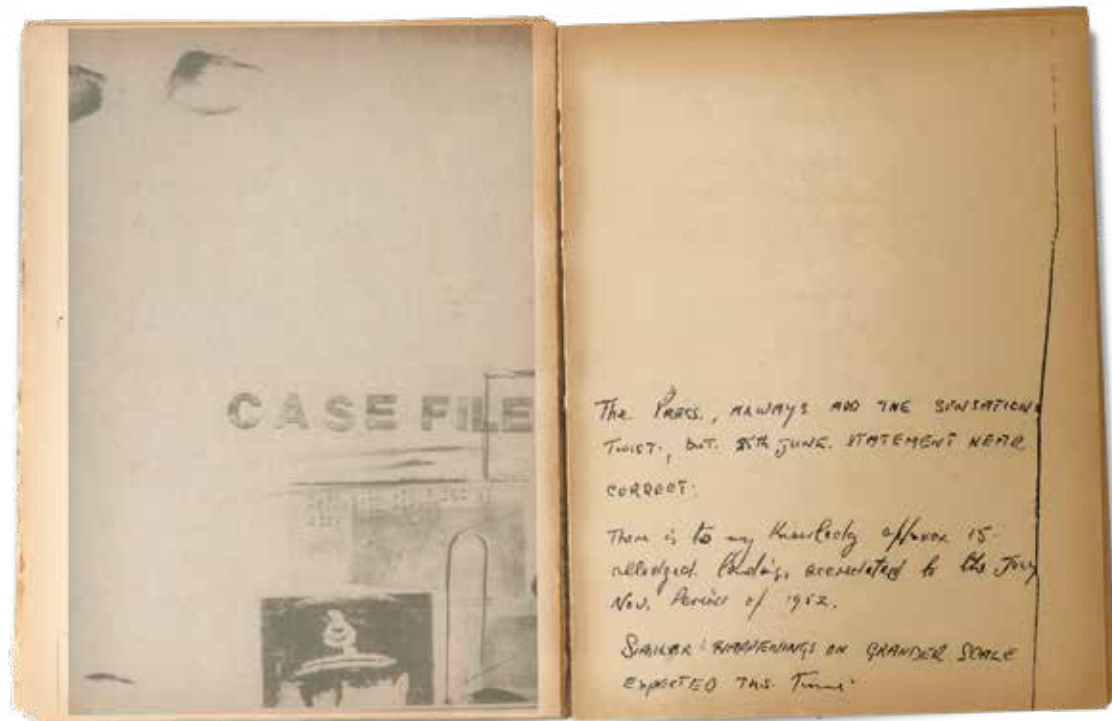 CASE FILE
The Press., ALWAYS ADD THE SENSATION
TWIST., BUT. 25th JUNE. STATEMENT NEAR
CORRECT.
There is to my Knowledg approx 15
alledged landings accredated to the
Nov. Period of 1952.
SIMILAR HAPPENINGS ON GRANDER SCALE
EXPECTED THIS Time.